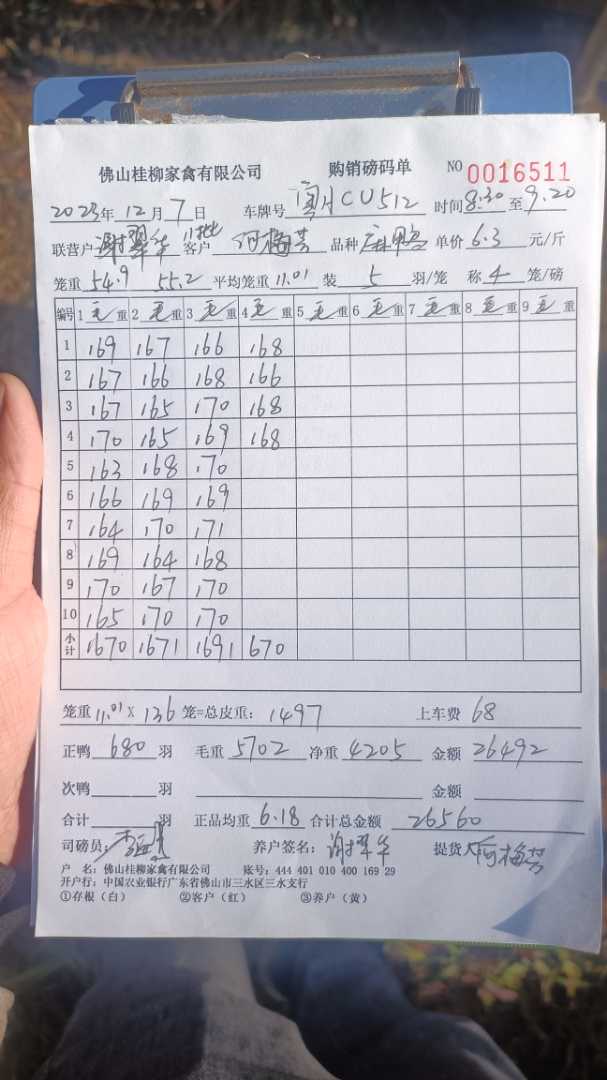 佛山桂柳家禽有限公司 购销磅码单 NO 0016511
2023年12月7日 车牌号 CU512 时间8:30至9.20
联营户 谢翠华 11批 客户 何梅芳 品种 麻鸭 单价6.3元/斤
笼重54.9 55.2 平均笼重11.01 装5羽/笼 称4笼/磅
编号 1毛重 2毛重 3毛重 4毛重 5毛重 6毛重 7毛重 8毛重 9毛重
1 169 167 166 168
2 167 166 168 166
3 167 165 170 168
4 170 165 169 168
5 163 168 170
6 166 169 169
7 164 170 171
8 169 164 168
9 170 167 170
10 165 170 170
小计 1670 1671 1691 670
笼重11.01X136笼=总皮重:1497 上车费68
正鸭680羽 毛重5702 净重4205 金额26492
次鸭 羽 金额
合计 羽 正品均重6.18 合计总金额26560
司磅员: 养户签名:谢翠华 提货人何梅芳
户 名:佛山桂柳家禽有限公司 账号:444 401 010 400 169 29
开户行:中国农业银行广东省佛山市三水区三水支行
①存根(白) ②客户(红) ③养户(黄)